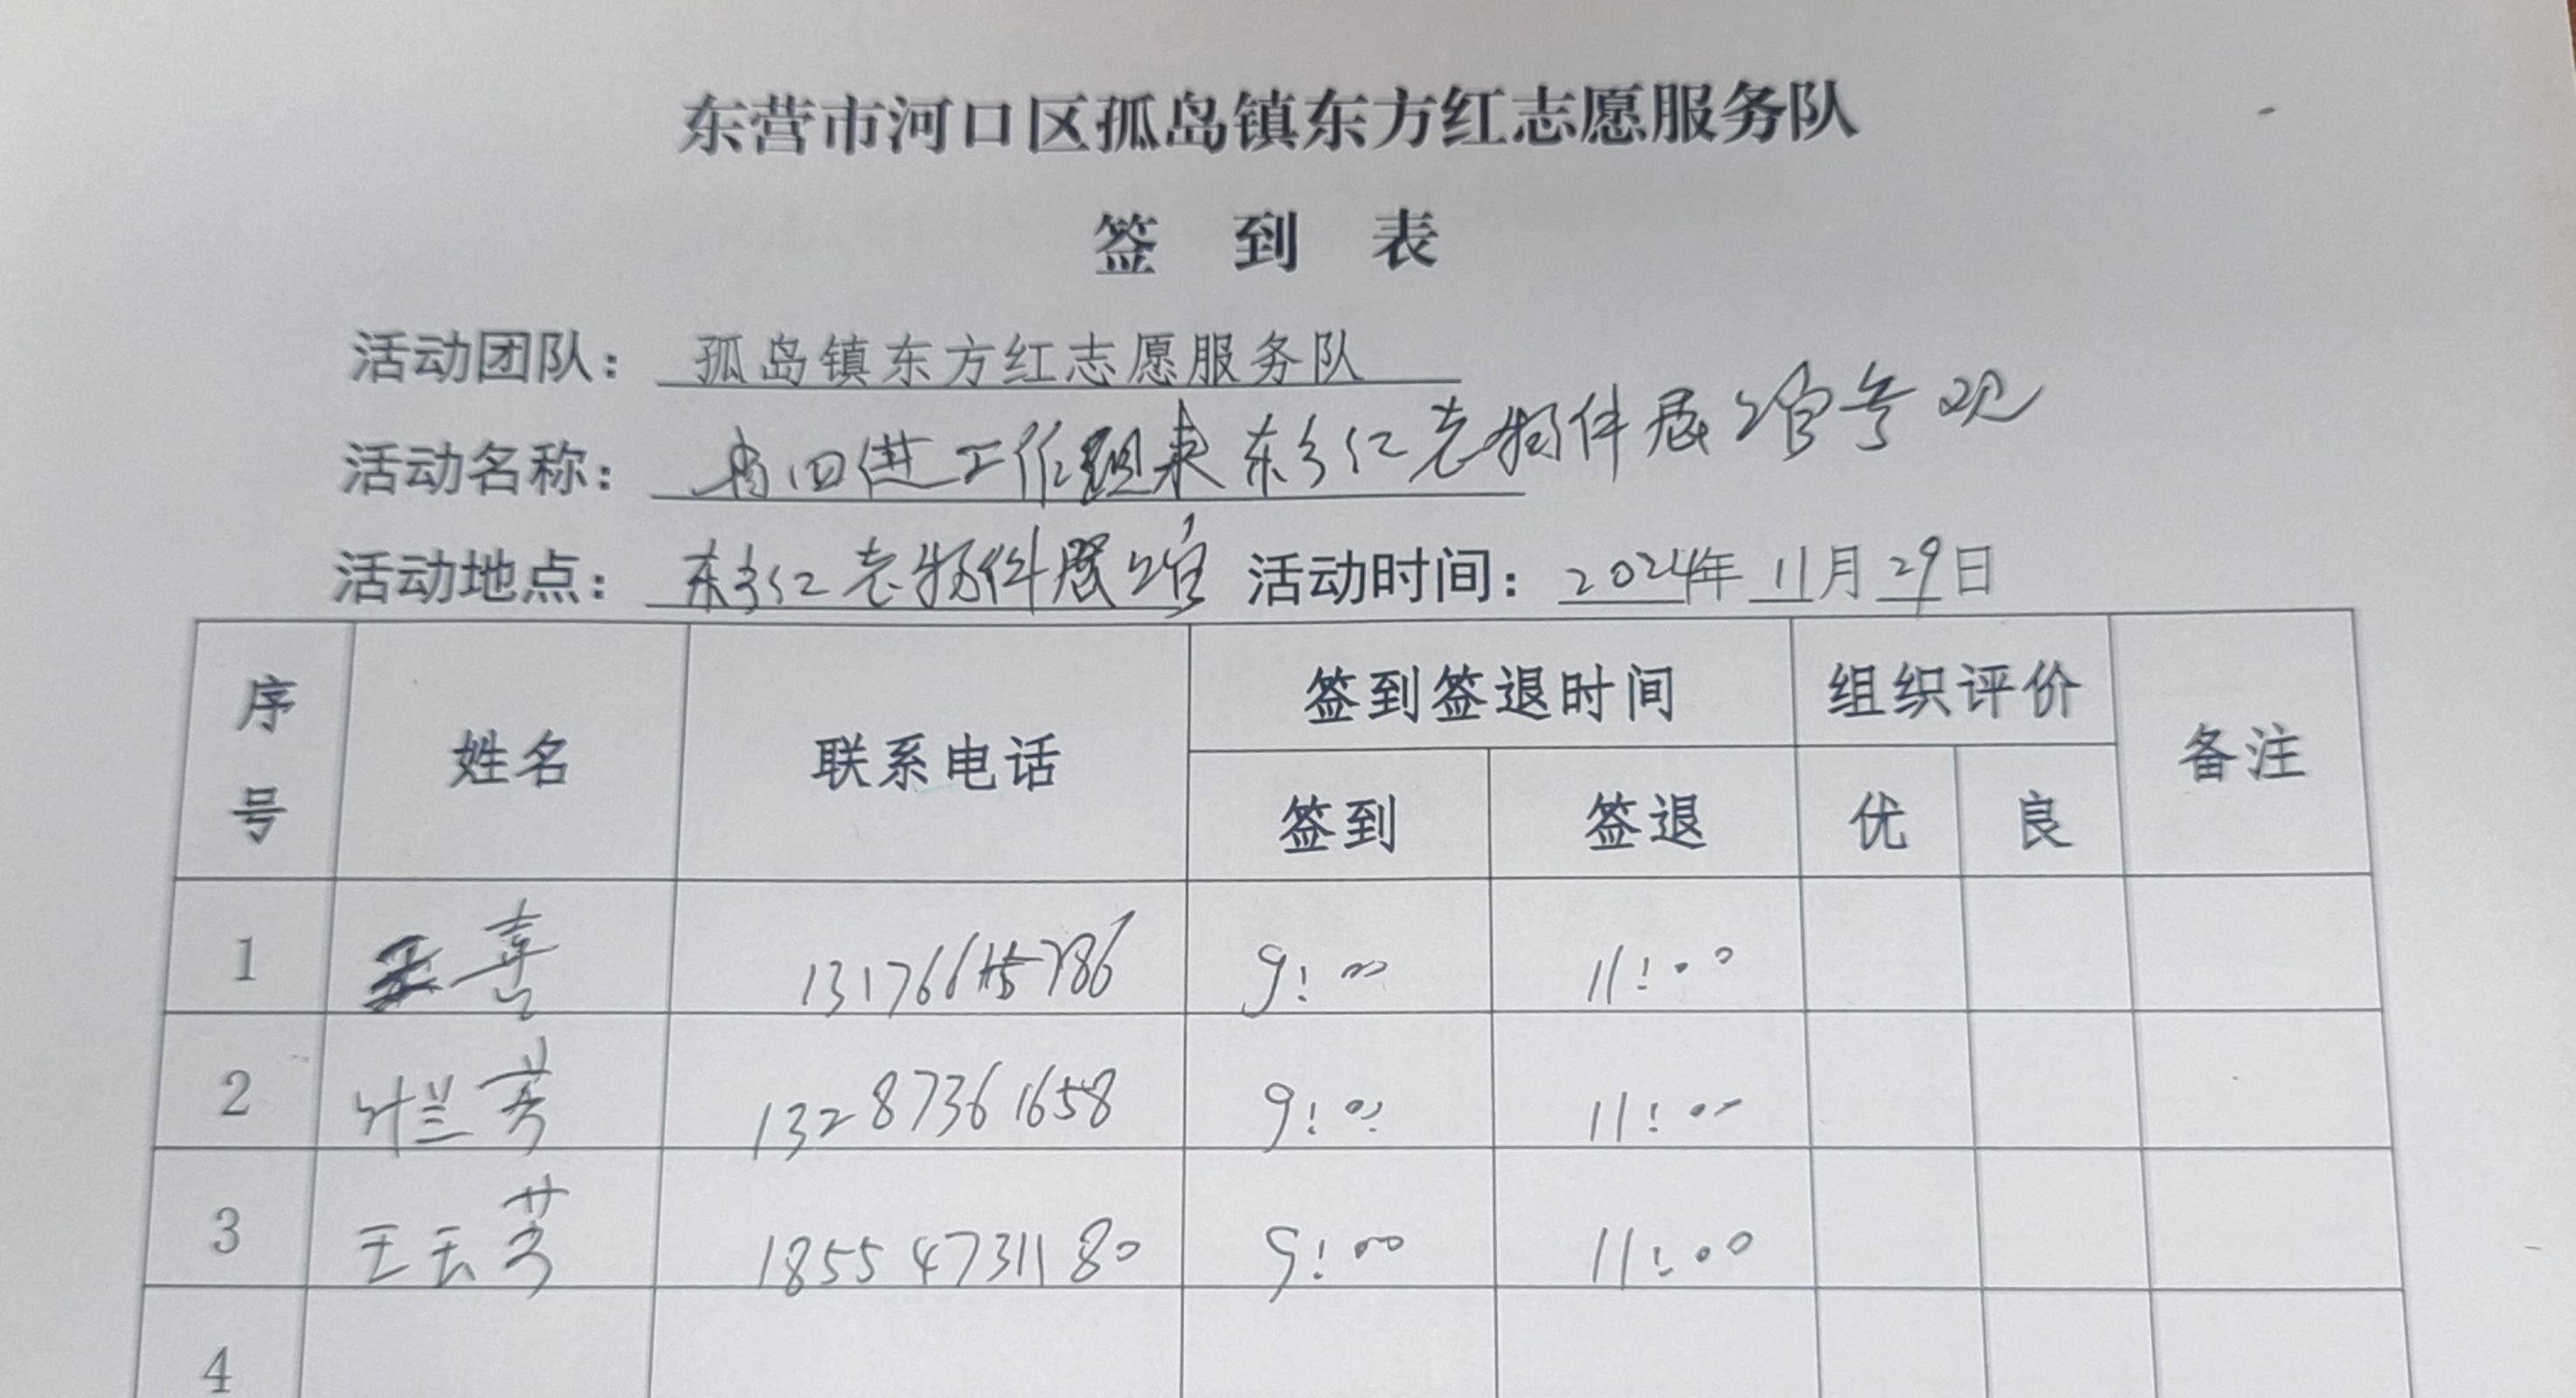 东营市河口区孤岛镇东方红志愿服务队
签 到 表
活动团队： 孤岛镇东方红志愿服务队
活动名称： 省四进工作组来东方红老物件展馆参观
活动地点： 东方红老物件展馆 活动时间： 2024年 11月 29日
序号 姓名 联系电话 签到签退时间 组织评价 备注
签到 签退 优 良
1 王喜 9:00 11:00
2 兰芳 13287361658 9:00 11:00
3 王玉芳 18554731180 9:00 11:00
4